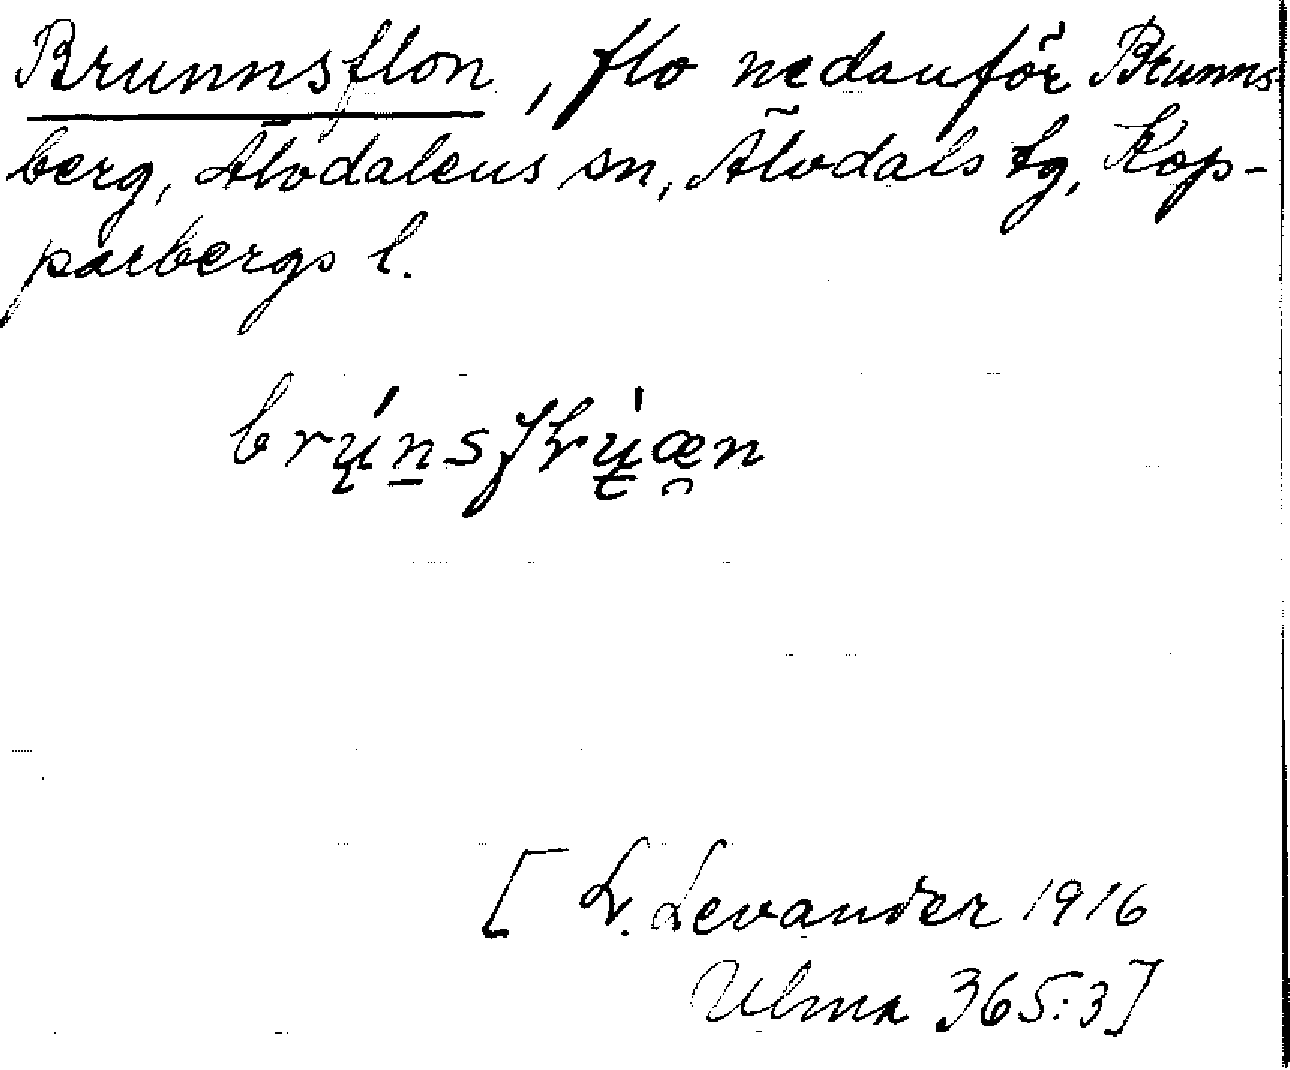 Brunnsflon, flo nedanför Brunns
berg, Älvdalens sn, Älvdals tg, Kop-
parbergs l.
[L. Levander 1916
Ulma 365:3]